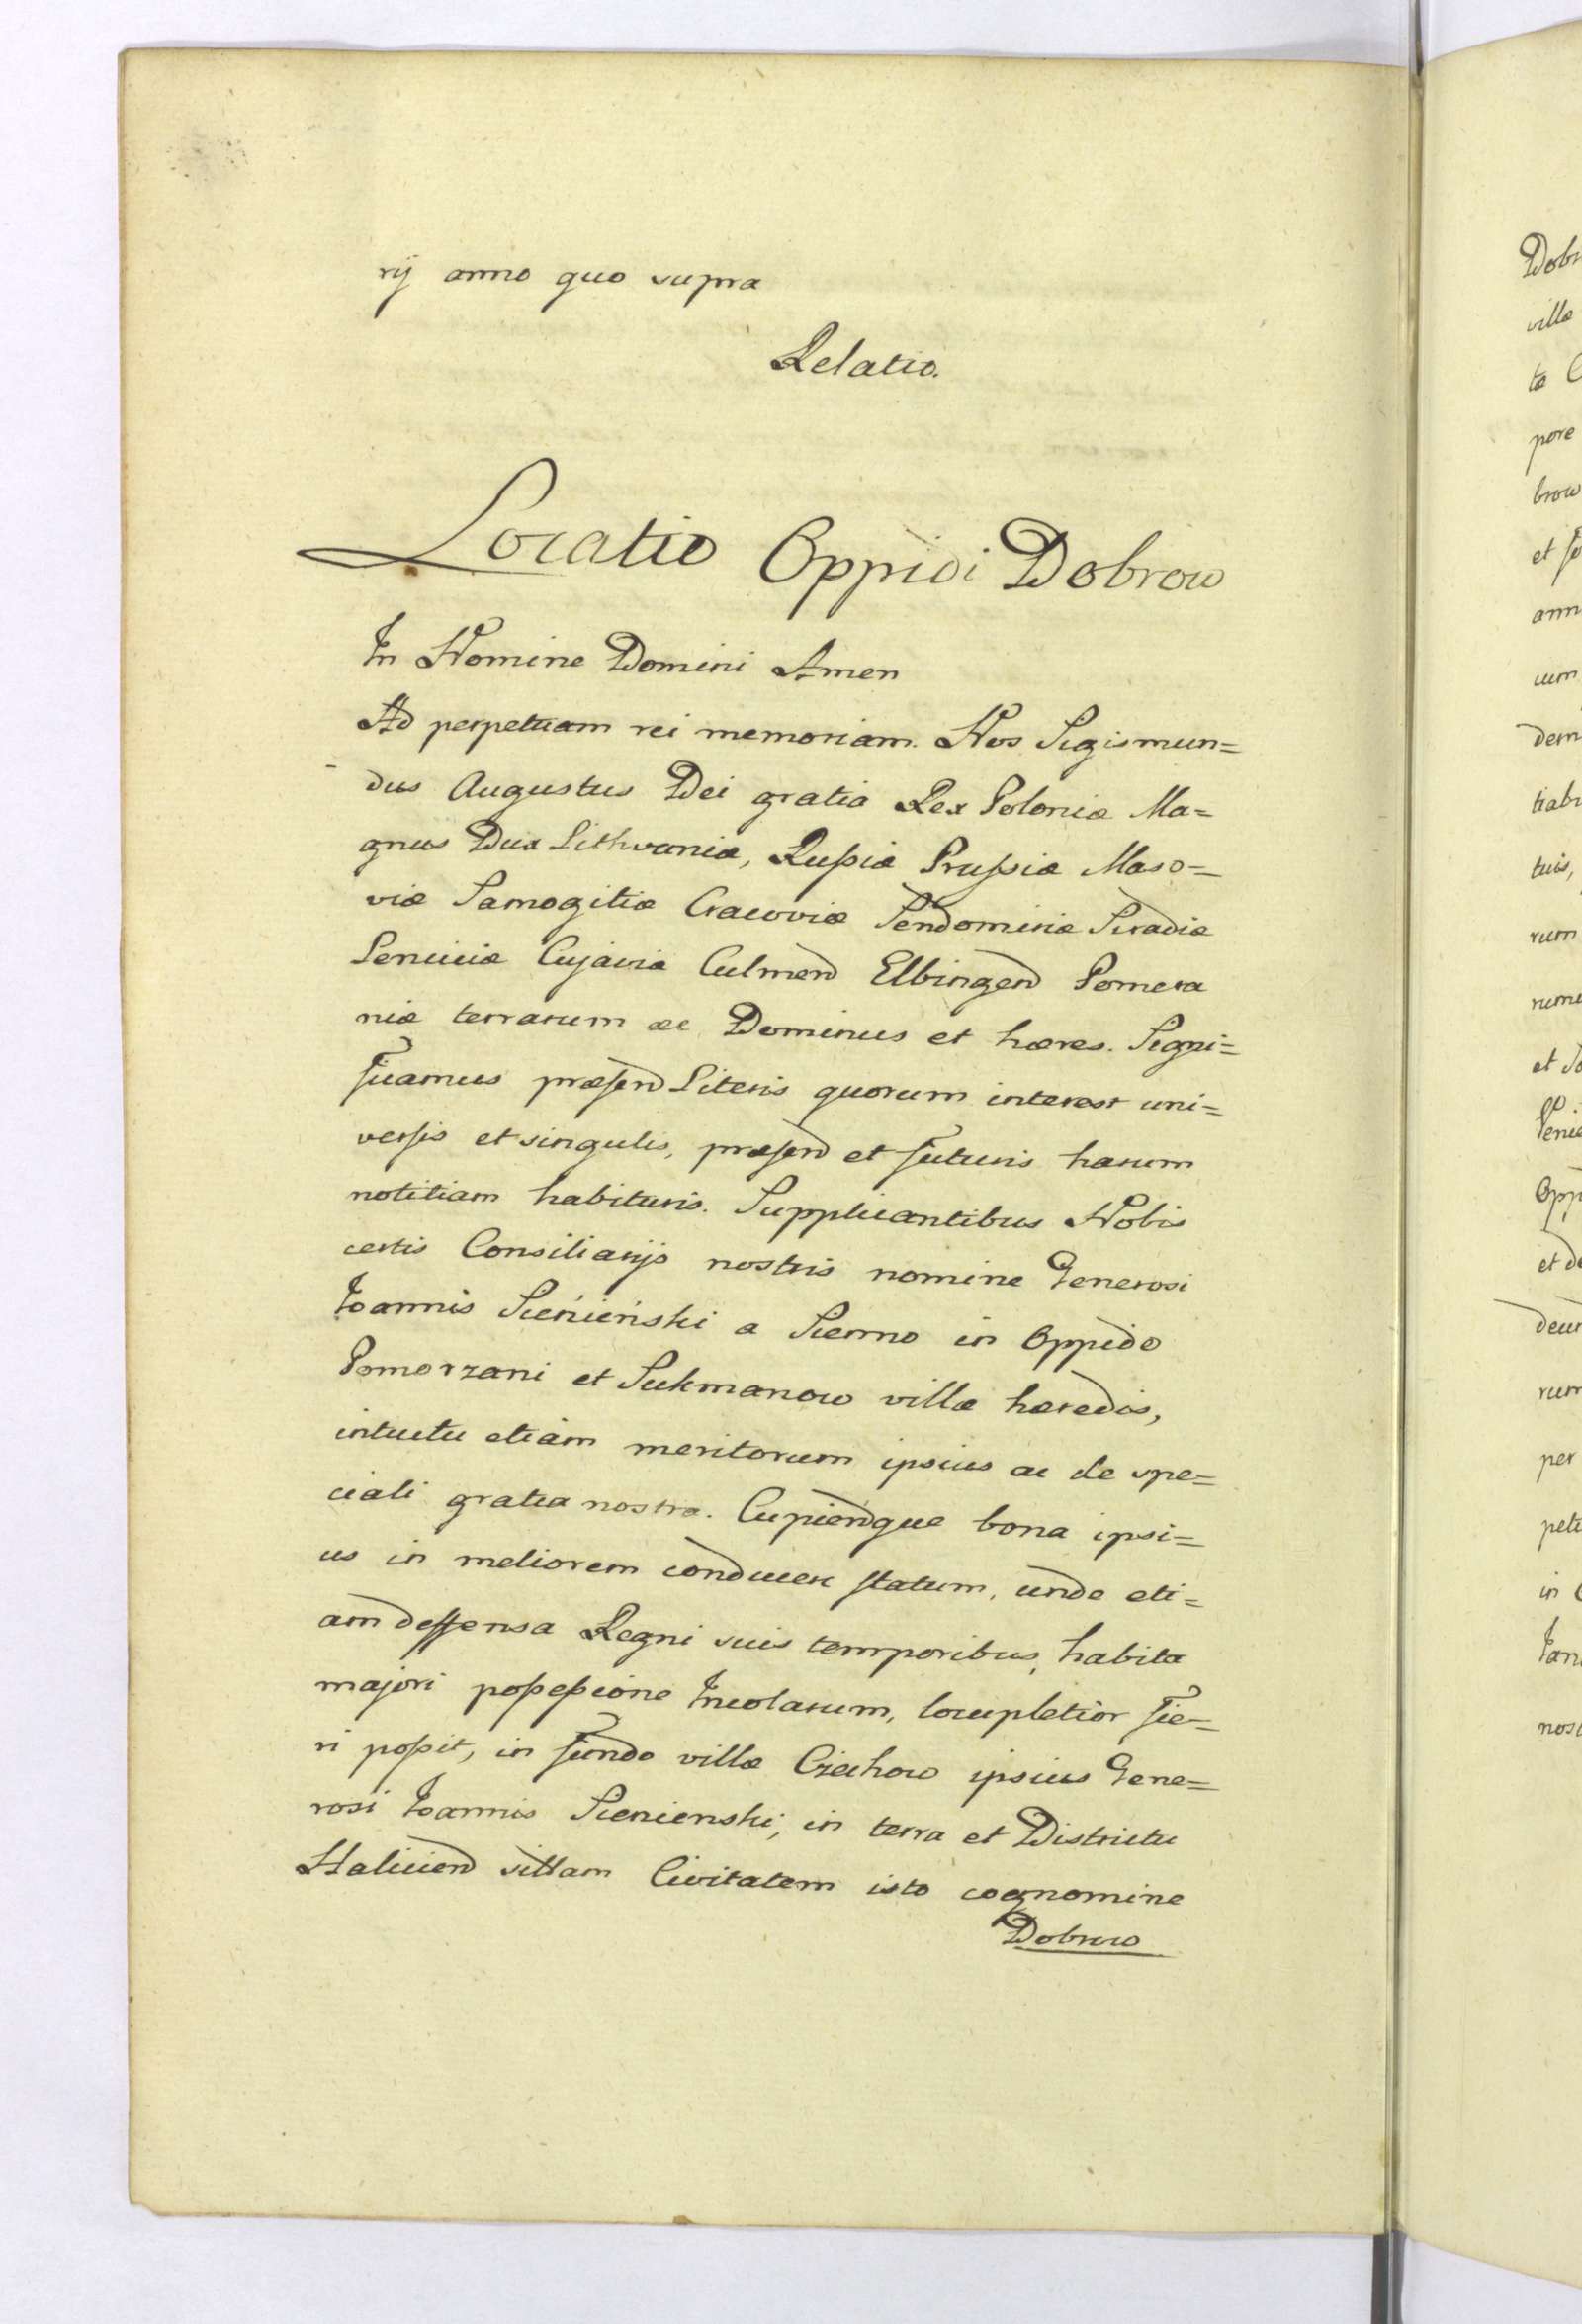 rij anno quo supra
Relatio.
Locatio Oppidi Dobrow
In Nomine Domini Amen
Ad perpetuam rei memoriam. Nos Sigismun=
dus Augustus Dei gratia Rex Poloniæ Ma=
gnus Dux Lithvaniæ, Russiæ Prussiæ Maso=
viæ Samogitiæ Cracoviæ Sendomiriæ Siradiæ
Lenciciæ Cujaviæ Culmen Elbingen Pomera
niæ terrarum æc Dominus et hæres. Signi=
ficamus præsen Literis quorum interest uni=
versis et singulis, præsen et futuris harum
notitiam habituris. Supplicantibus Nobis
certis Consiliarijs nostris nomine Generosi
Joannis Sienieński a Sienno in Oppido
Pomorzani et Sukmanow villæ hæredis,
intuitu etiam meritorum ipsius ac de spe=
ciali gratia nostra. Cupienque bona ipsi=
us in meliorem conducere statum, unde eti=
am deffensa Regni suis temporibus, habita
majori possessione Incolarum, locupletior fie=
ri possit, in fundo villæ Cziechow ipsius Gene=
rosi Joannis Sienienski, in terra et Districtu
Halicien sittam Civitatem isto cognomine
Dobrow
Dobr
villæ
ta C
pore
brow
et fu
ann
cum
dem
trabu
tuis,
rum
nume
et
Opp
et de
deun
rum
per
pet
in
nost